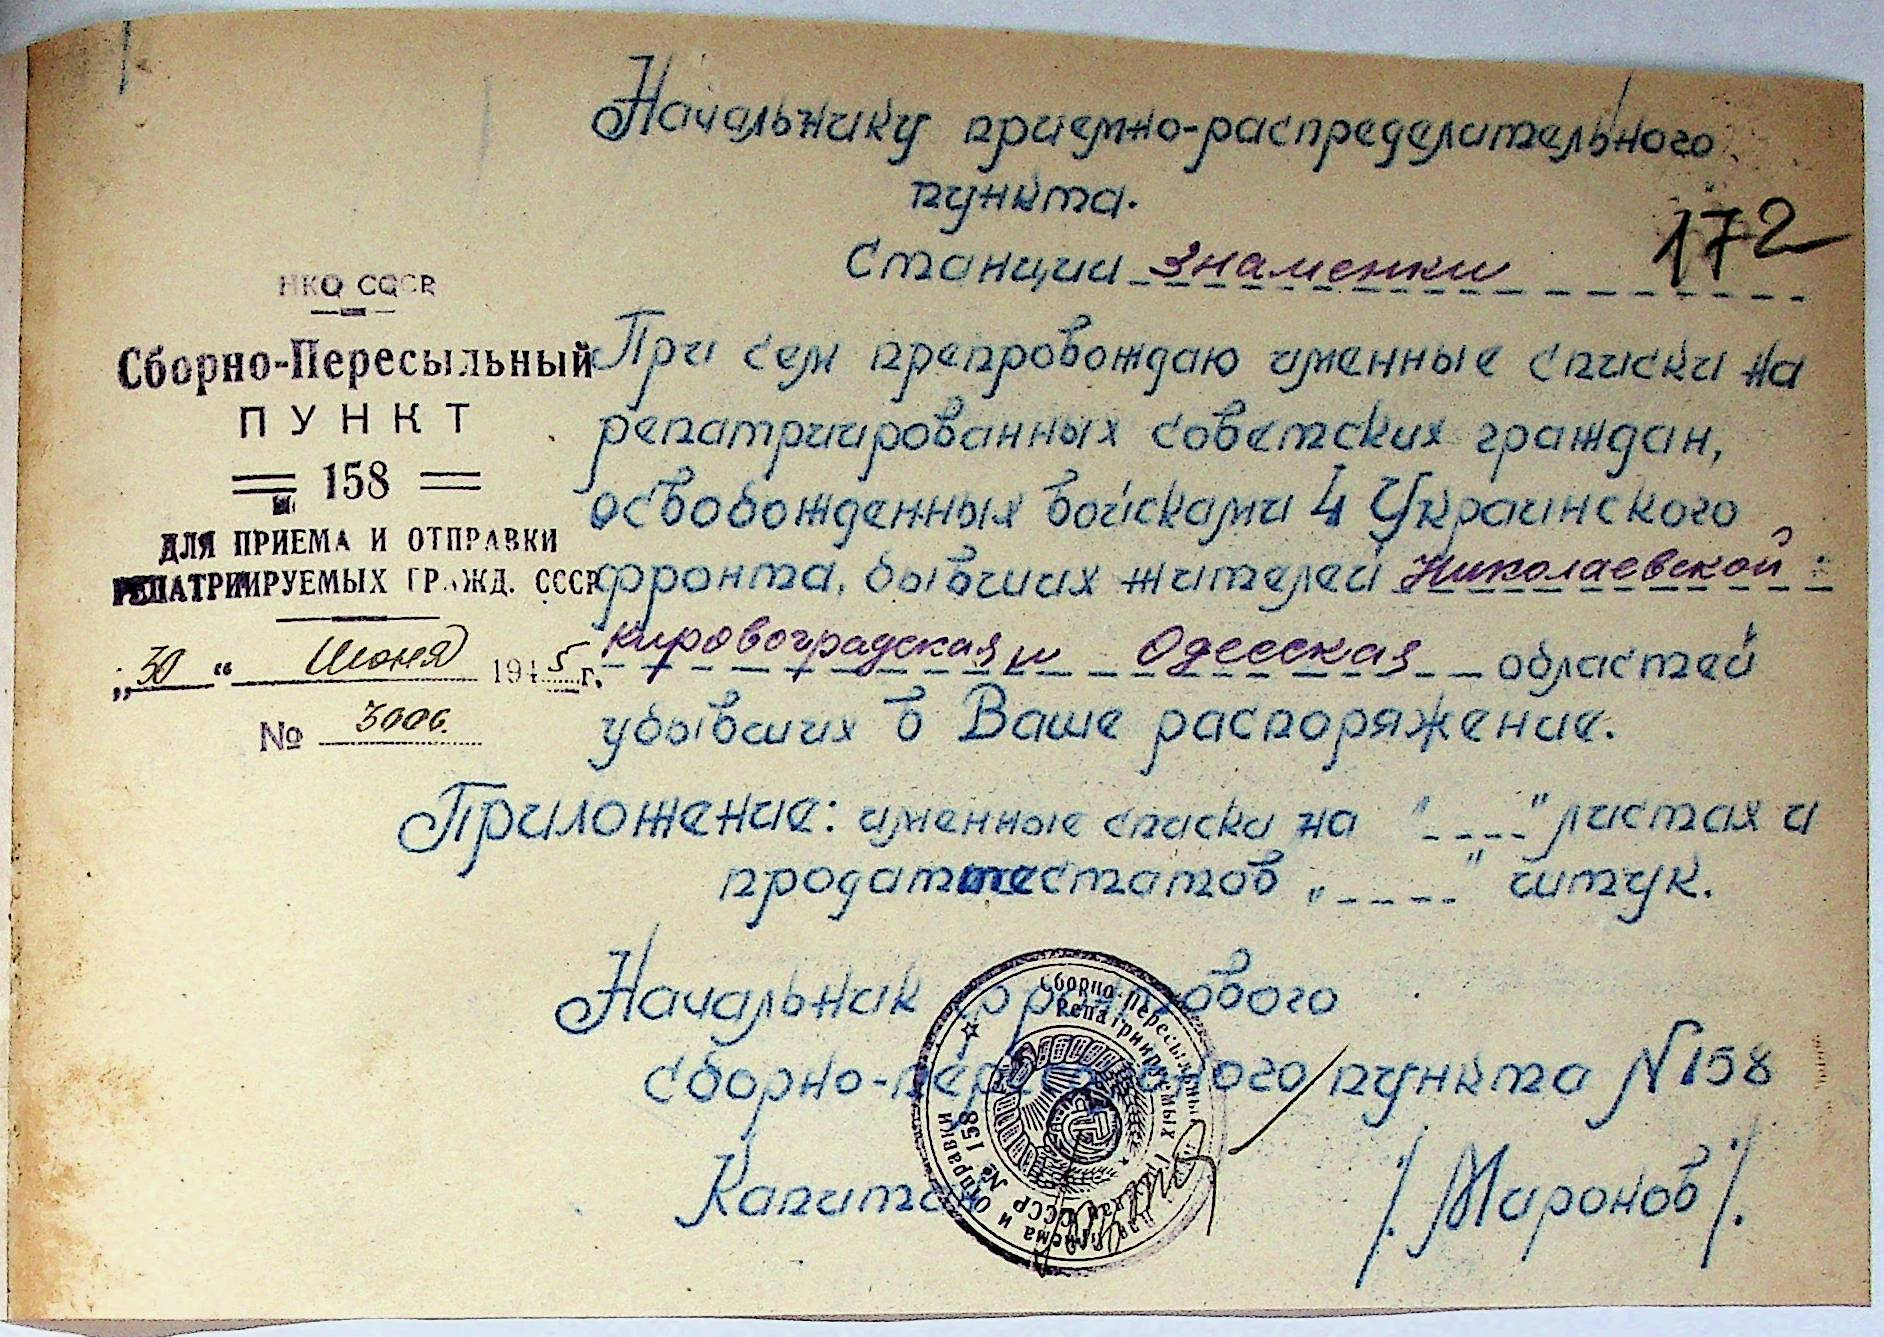 Начальнику приемно-распределительного
пункта.
172
Станции Знаменки
НКО СССР
Сборно-Пересыльный
ПУНКТ
158
ДЛЯ ПРИЕМА И ОТПРАВКИ
РЕПАТРИИРУЕМЫХ ГРАЖД. СССР
„30“ Июня 1945 г.
№ 3006.
При сем препровождаю именные списки на
репатриированных советских граждан,
освобожденных войсками 4 Украинского
фронта, бывших жителей Николаевской:
Кировоградская и Одесская областей
убывших в Ваше распоряжение.
Приложение: именные списки на "----" листах и
продаттестатов „----" штук.
Начальник фронтового
сборно-пересыльного пункта N158
Капитан /Миронов/.
Сборно-пересыльный
Репатриируемых Граждан СССР № 158
для приема и отправки